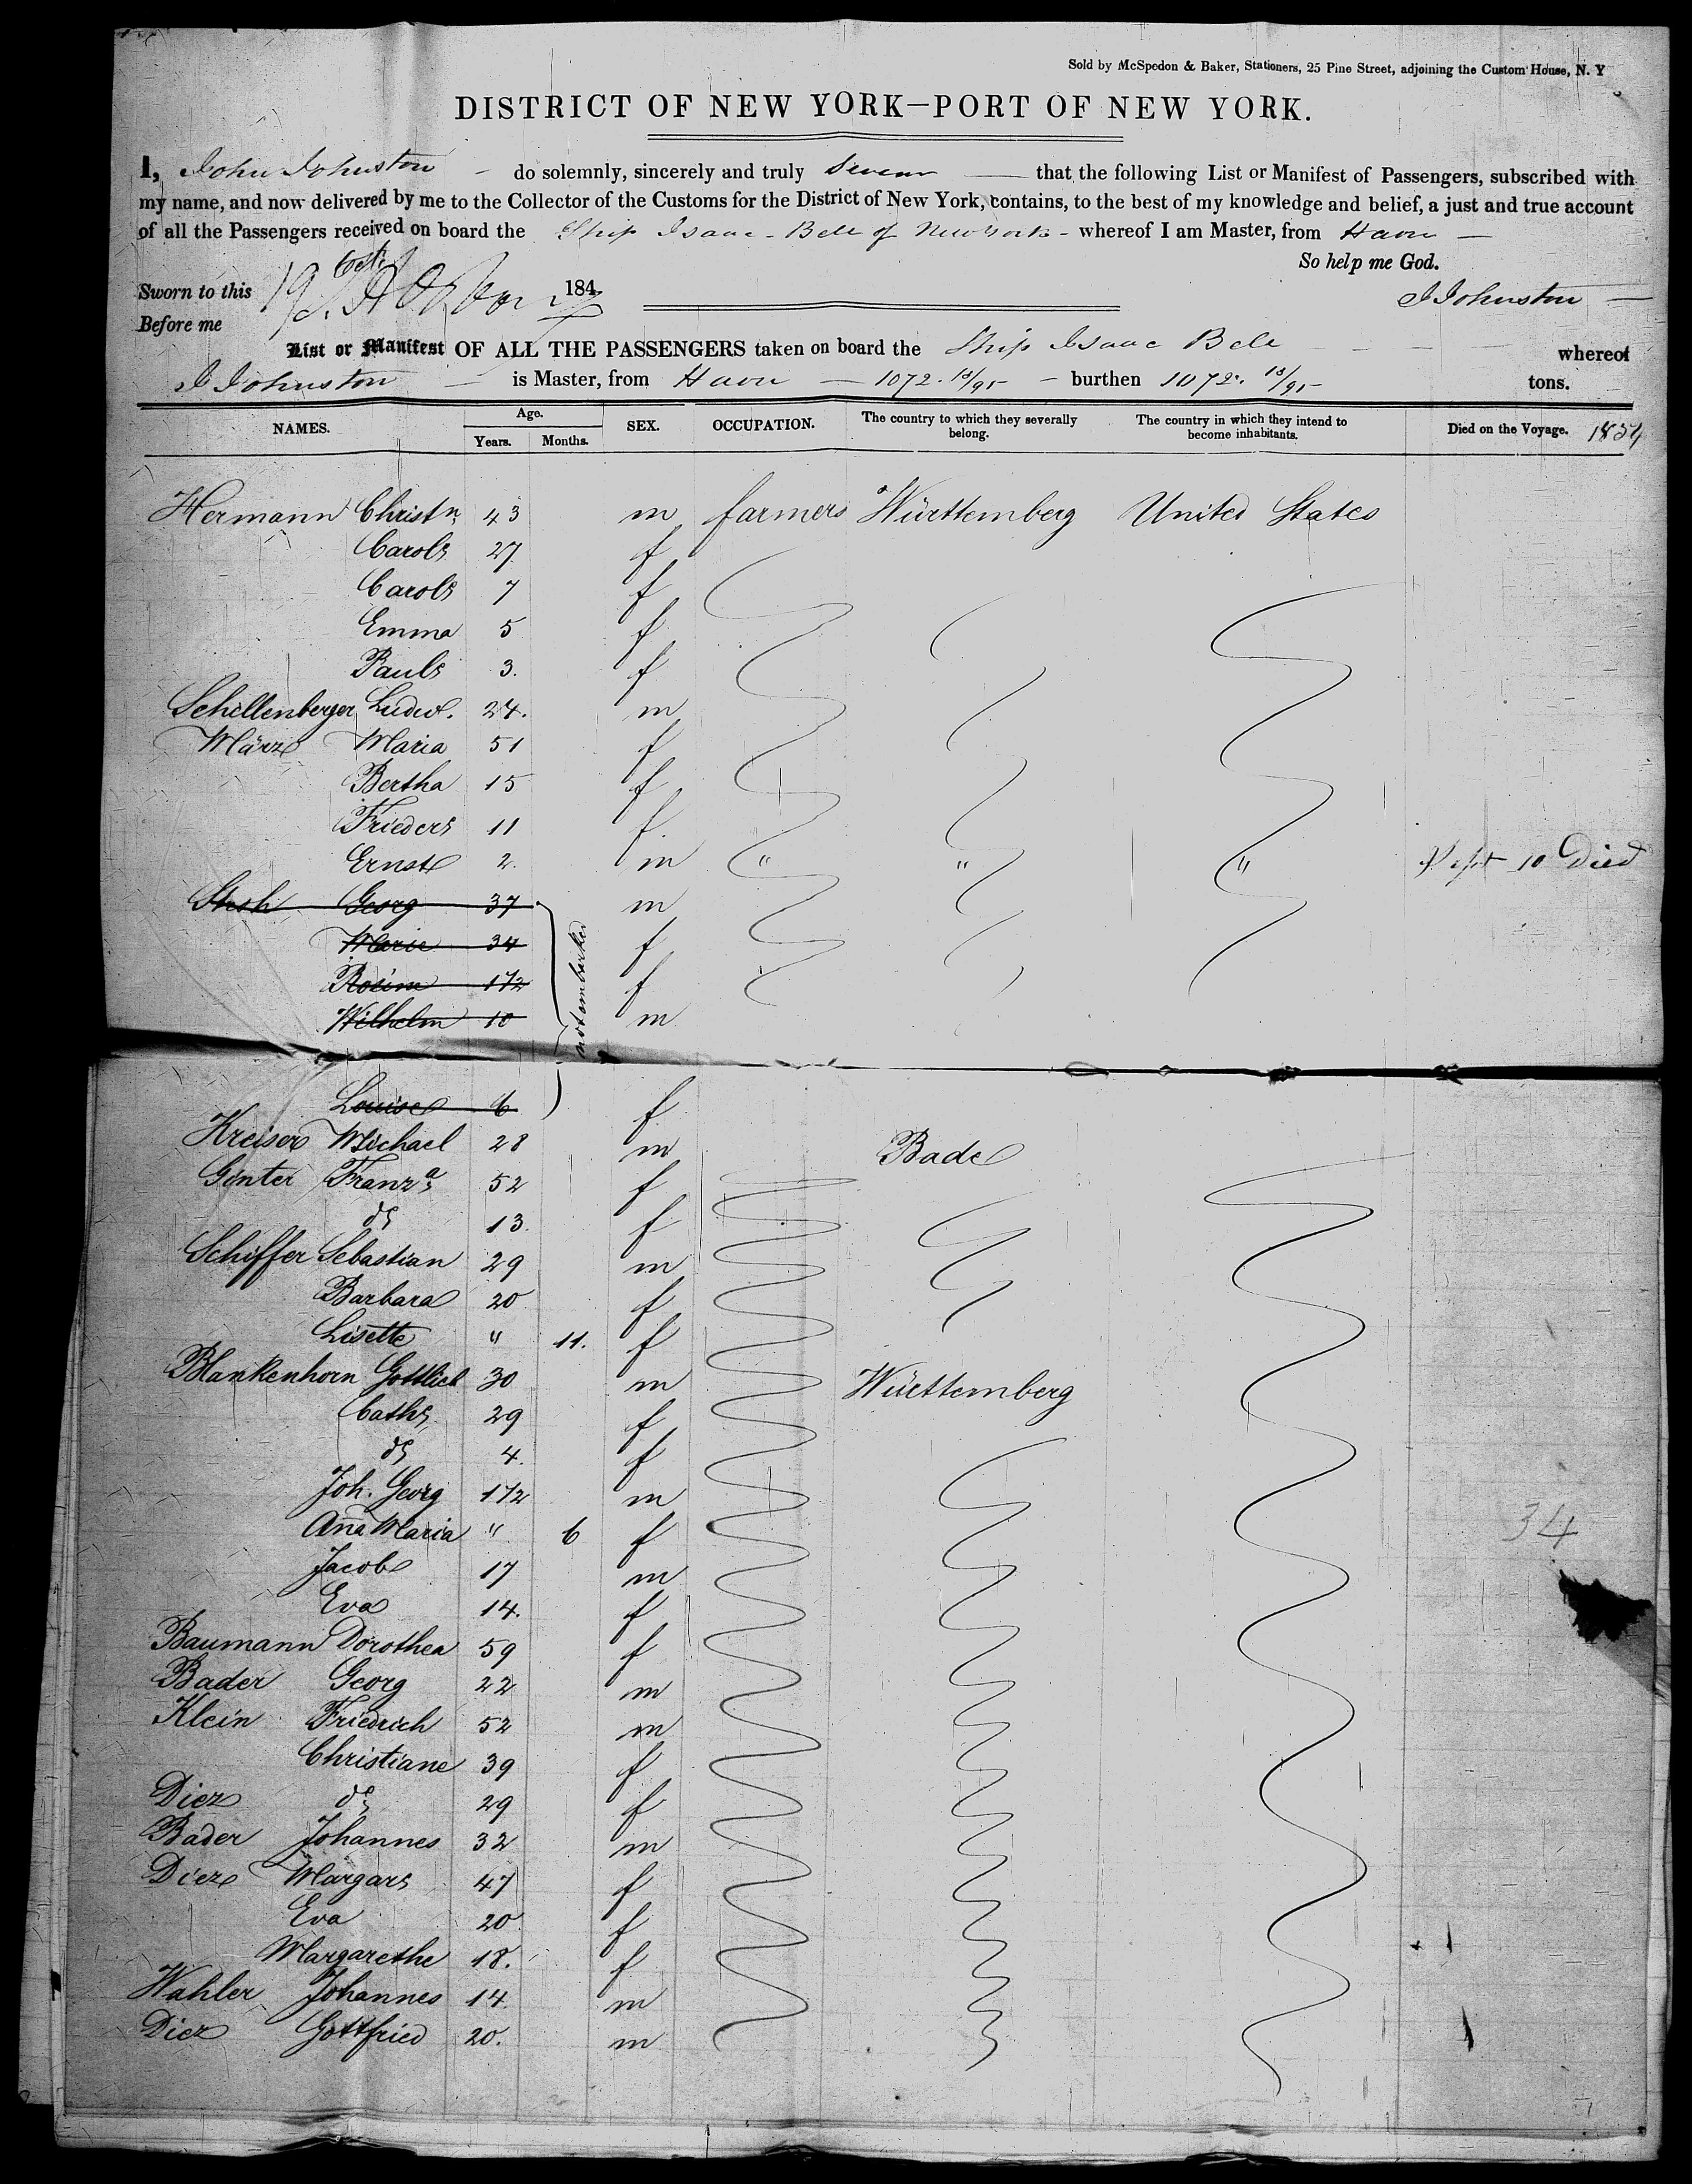 Sold by McSpedon & Baker, Stationers, 25 Pine Street, adjoining the Custom House, N. Y
DISTRICT OF NEW YORK—PORT OF NEW YORK.
I, John Johnston - do solemnly, sincerely and truly swear — that the following List or Manifest of Passengers, subscribed with
my name, and now delivered by me to the Collector of the Customs for the District of New York, contains, to the best of my knowledge and belief, a just and true account
of all the Passengers received on board the Ship Isaac - Bell of New York - whereof I am Master, from Havre —
So help me God.
Sworn to this 19 Oct 184
J Johnston —
Before me
List or Manifest OF ALL THE PASSENGERS taken on board the Ship Isaac Bell whereof
J Johnston — is Master, from Havre — 1072. 13/95 - burthen 1072. 13/95 - tons.
NAMES. Age. Years. Months. SEX. OCCUPATION. The country to which they severally belong. The country in which they intend to become inhabitants. Died on the Voyage. 1854
Hermann Christn 43 m farmers Württemberg United States
Carols 27 f
Carols 7 f
Emma 5 f
Pauls 3. f
Schellenberger Ludw. 24. m
März Maria 51 f
Bertha 15 f
Frieders 11 f.
Ernst 2. m " " " Sept 10 Died
Georg 37 m
not embarked
Marie 34 f
Rosine 1 1/2 f
Wilhelm 10 m
Louise 6 f
Kreiser Michael 28 m Bade
Ginter Franza 52 f
do 13. f
Schiffer Sebastian 29 m
Barbara 20 f
Lisette " 11. f
Blankenhorn Gottlieb 30 m Württemberg
Caths 29 f
do 4. f
Joh. Georg 1 1/2 m
Aña Maria " 6 f
34
Jacob 17 m
Eva 14. f
Baumann Dorothea 59 f
Bader Georg 22 m
Klein Friedrich 52 m
Christiane 39 f
Diez do 29 f
Bader Johannes 32 m
Diez Margars 47 f
Eva 20 f
Margarethe 18. f
Wahler Johannes 14. m
Diez Gottfried 20. m